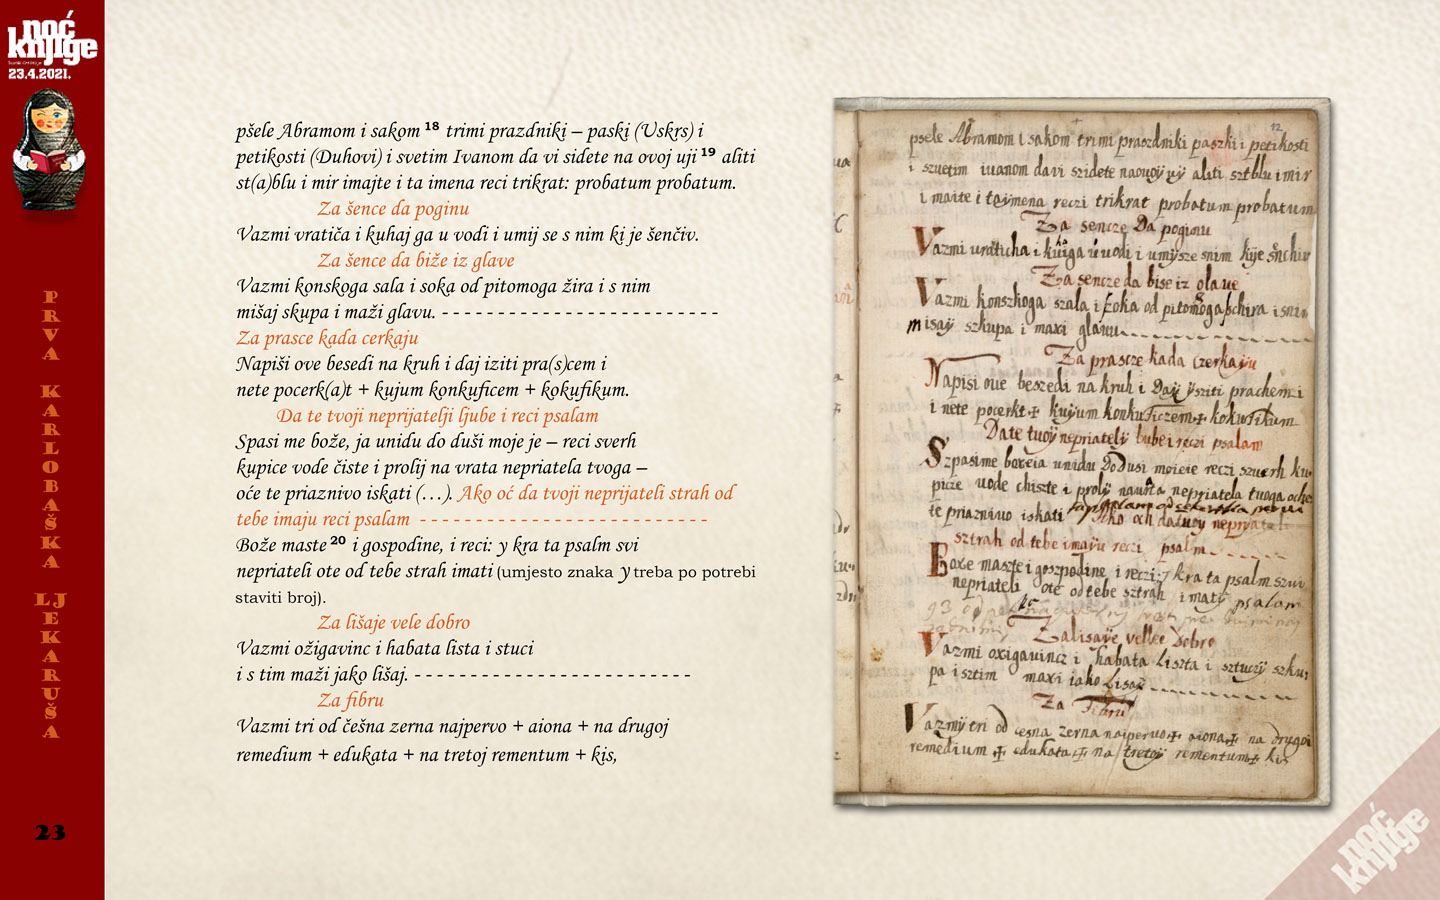 noć
knjige
23.4.2021.
PRVA KARLOBAŠKA LJEKARUŠA
23
pšele Abramom i sakom 18 trimi prazdniki – paski (Uskrs) i
petikosti (Duhovi) i svetim Ivanom da vi sidete na ovoj uji 19 aliti
st(a)blu i mir imajte i ta imena reci trikrat: probatum probatum.
Za šence da poginu
Vazmi vratiča i kuhaj ga u vodi i umij se s nim ki je šenčiv.
Za šence da biže iz glave
Vazmi konskoga sala i soka od pitomoga žira i s nim
mišaj skupa i maži glavu. - - - - - - - - - - - - - - - - - - - - - - - - -
Za prasce kada cerkaju
Napiši ove besedi na kruh i daj iziti pra(s)cem i
nete pocerk(a)t + kujum konkuficem + kokufikum.
Da te tvoji neprijatelji ljube i reci psalam
Spasi me bože, ja unidu do duši moje je – reci sverh
kupice vode čiste i prolij na vrata nepriatela tvoga –
oće te priaznivo iskati (…). Ako oć da tvoji neprijateli strah od
tebe imaju reci psalam - - - - - - - - - - - - - - - - - - - - - - - - - -
Bože maste 20 i gospodine, i reci: y kra ta psalm svi
nepriateli ote od tebe strah imati (umjesto znaka y treba po potrebi
staviti broj).
Za lišaje vele dobro
Vazmi ožigavinc i habata lista i stuci
i s tim maži jako lišaj. - - - - - - - - - - - - - - - - - - - - - - - - -
Za fibru
Vazmi tri od češna zerna najpervo + aiona + na drugoj
remedium + edukata + na tretoj rementum + kis,
12
psele Abramom i sakom trimi praszdniki paszki i petikosti
i szuetim iuanom da vi szidete naouoÿ uÿ aliti sztblu i mir
i maite i taÿmena reczi trikrat probatum probatum
Za sencze Da poginu
Vazmi uraticha i kuiga u uodi i umÿsze snim kije snchiv
Za sencze da bise iz glaue
Vazmi konszkoga szala i szoka od pitomoga schira i snim
misaÿ szkupa i maxi glauu
Za prascze kada czerkaÿu
Napisi oue beszedi na kruh i Daÿ ÿsziti prachem i
i nete pocerkt + kuÿum konkuficzem + kokufikum
Date tuoÿ neprijatelÿ lube i reczi psalam
Szpasime boxeia unidu Do Dusi moieie reczi szuerh ku
picze uode chiszte i prolÿ na urata nepriatela tuoga oche
te priazniuo iskati Ako och datuoÿ neprijateli
sztrah od tebe imaÿu reczi psalm
Boxe maszte i goszpodine i reczi y kra ta psalm szui
nepriateli ote od tebe sztrah imati psalam
Zalisaÿe vellee dobro
Vazmi oxigauincz i habata liszta i sztuczÿ szku
pa i sztim maxi iako Lisaÿ
Za Fibru
Vazmÿ tri od cesna zerna naipervo + aiona + na drugoi
remedium + edukata + na tretoÿ rementum + kis
noć
knjige